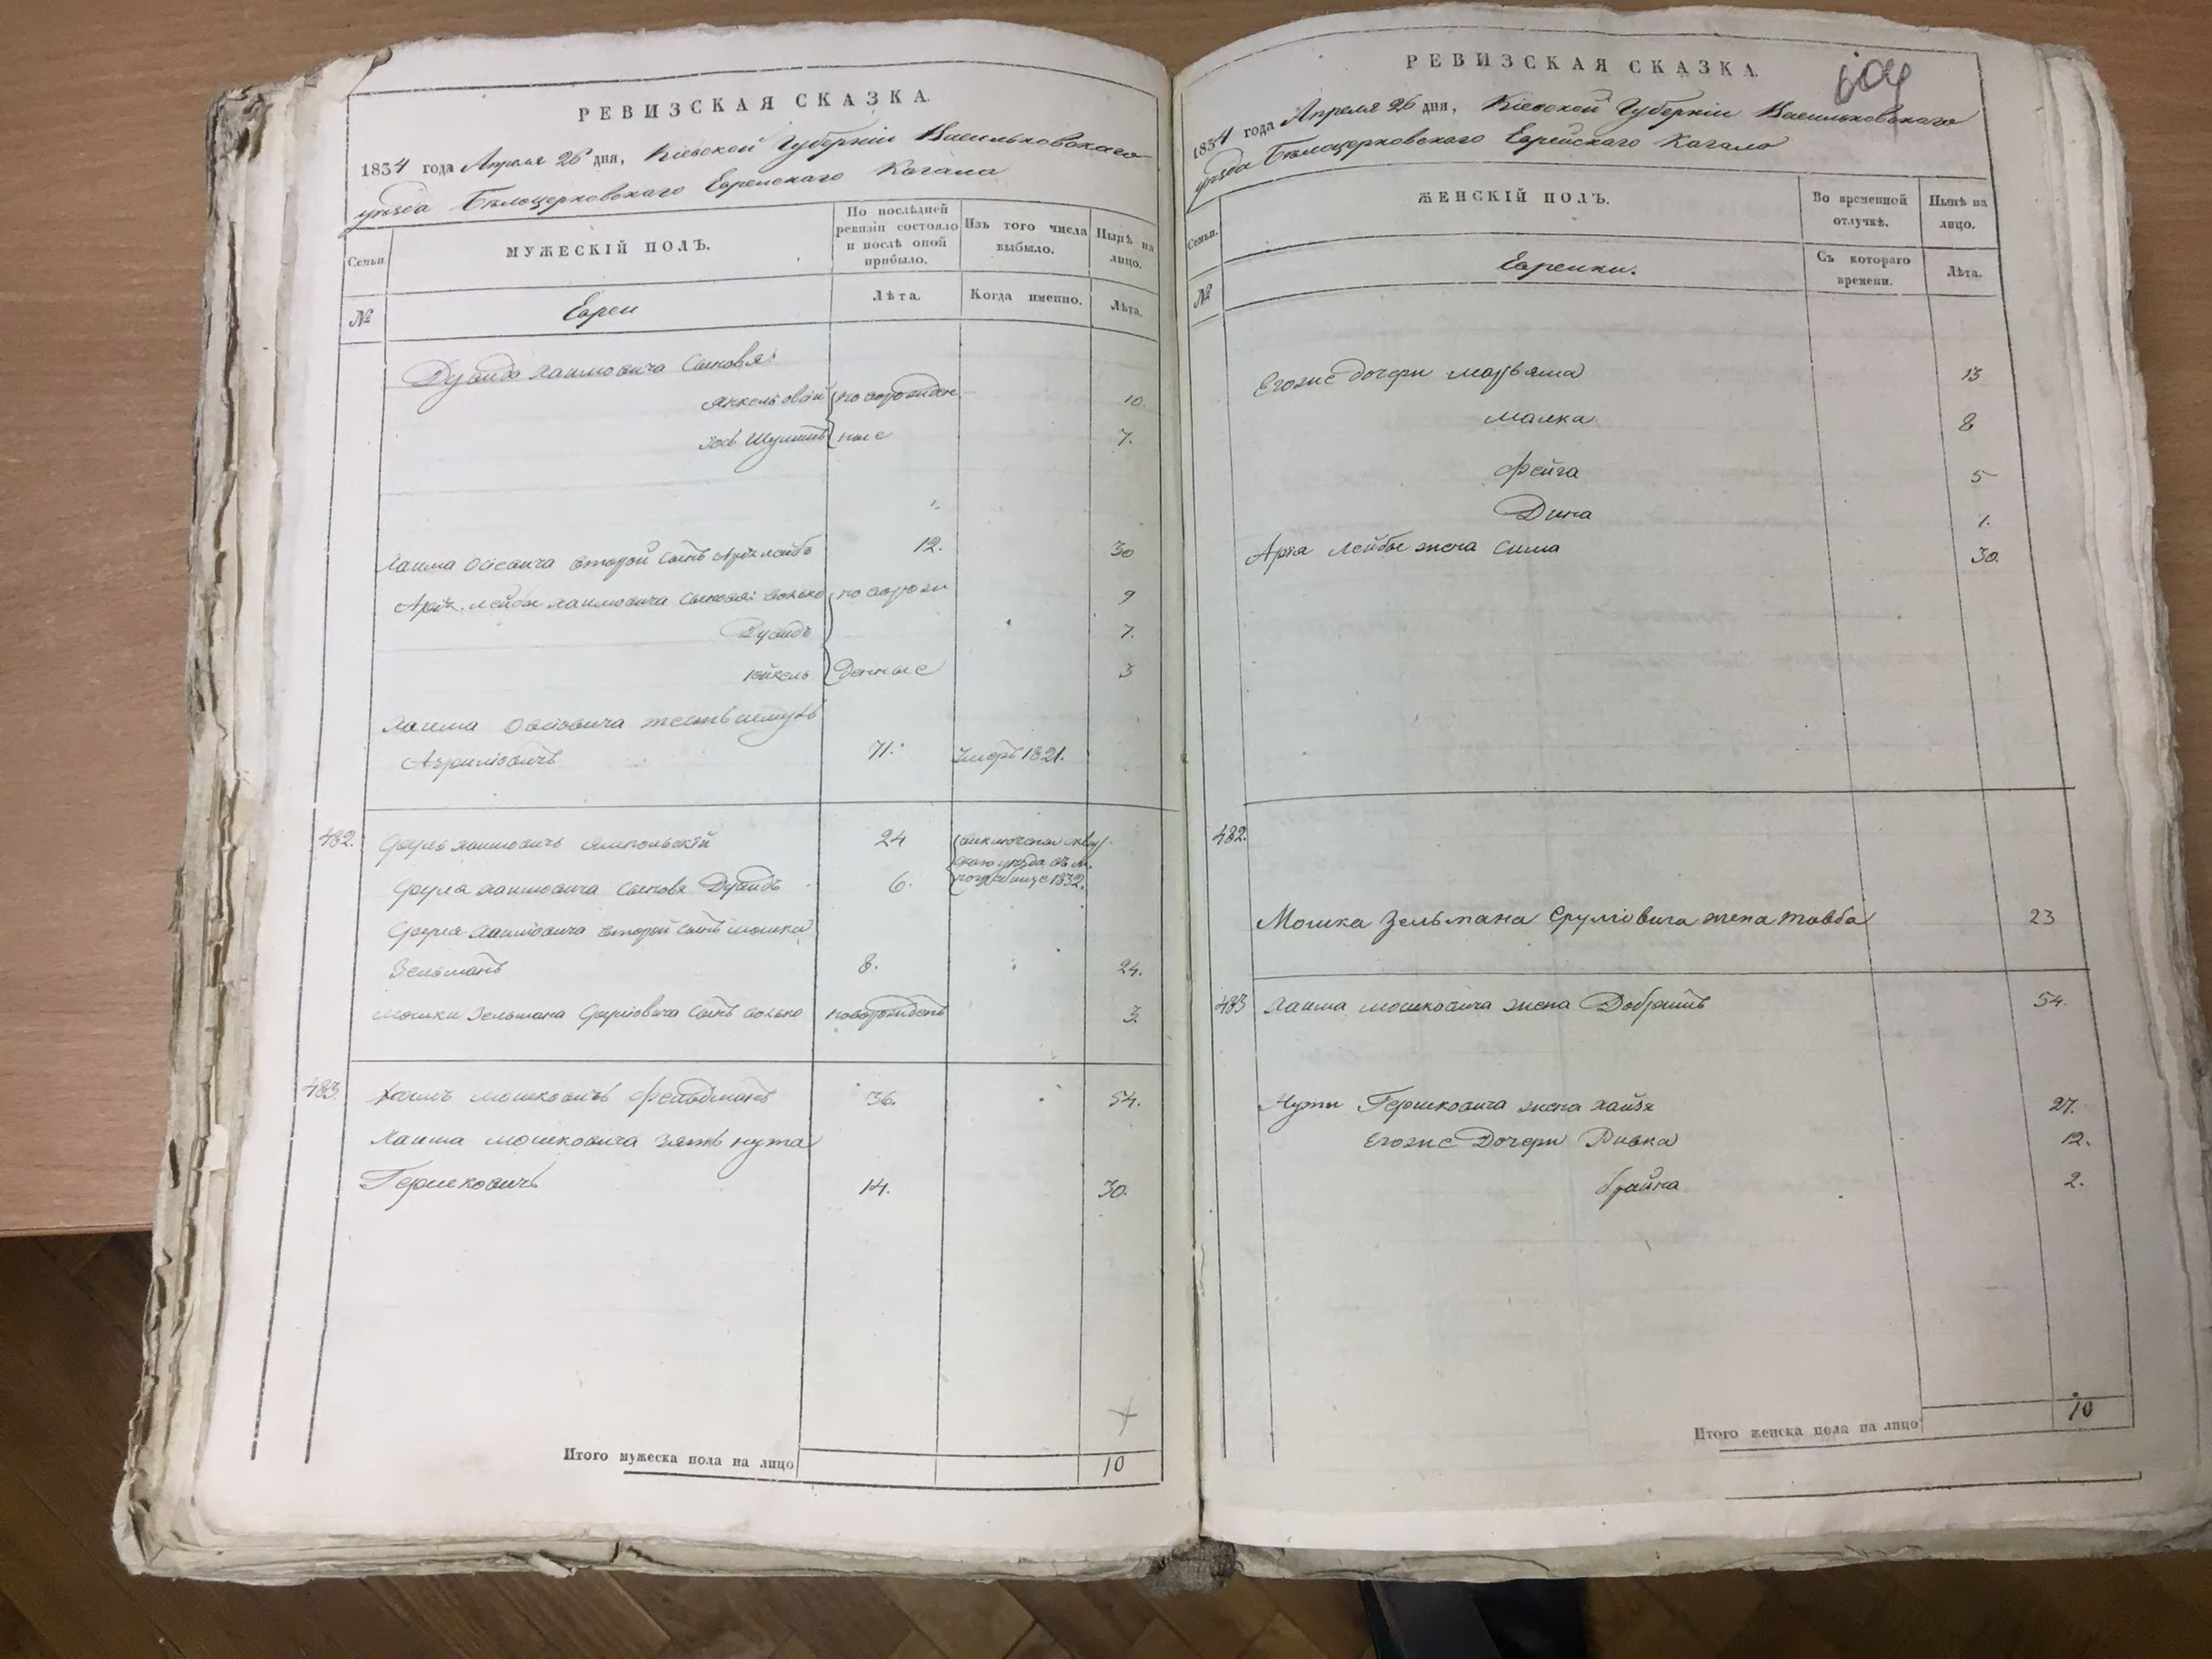 РЕВИЗСКАЯ СКАЗКА.
1834 года Апреля 26 дня, Кіевской Губерніи Васильковскаго
уѣзда Бѣлоцерковскаго Еврейскаго Кагала
Семьи
МУЖЕСКІЙ ПОЛЪ.
По послѣдней ревизіи состояло и послѣ оной прибыло.
Изъ того числа выбыло.
Нынѣ на лицо.
№
Евреи
Лѣта.
Когда именно.
Лѣта.
Дувида Хаимовича сыновя:
Янкель новорожден 10.
Іось ные 7.
Хаима второй сынъ Арія лейбъ 12. 30
Арія лейбы Хаимовича сыновя: Волько новорож 9
Дувидъ 7.
Юйкель денные 3
Хаима
71. Умеръ 1821.
482. Хаимовичъ Ямпольскій 24
Хаимовича сыновя Дувидъ 6. 1832.
второй сынъ Мошка
Зельманъ 8. 24.
Мошки Зельмана сынъ Волько новорожденъ 3.
483. Хаимъ Мошковичъ Фельдманъ 36. 54.
Хаима Мошковича зять Нута
Гершковичъ 14. 30.
Итого мужеска пола на лицо 10
РЕВИЗСКАЯ СКАЗКА.
604
1834 года Апреля 26 дня, Кіевской Губерніи Васильковскаго
уѣзда Бѣлоцерковскаго Еврейскаго Кагала
Семьи.
ЖЕНСКІЙ ПОЛЪ.
Во временной отлучкѣ.
Нынѣ на лицо.
№
Еврейки.
Съ котораго времени.
Лѣта.
Егоже дочери Марьяма 13
Малка 8
Фейга 5
Дина 1.
Арія Лейбы жена Сима 30.
482.
Мошка Зельмана Сруліовича жена Товба 23
483 Хаима Мошковича жена Добришъ 54.
Нуты Гершковича жена Хайзя 27.
Егоже Дочери Ривка 12.
Брайна 2.
Итого женска пола на лицо 10